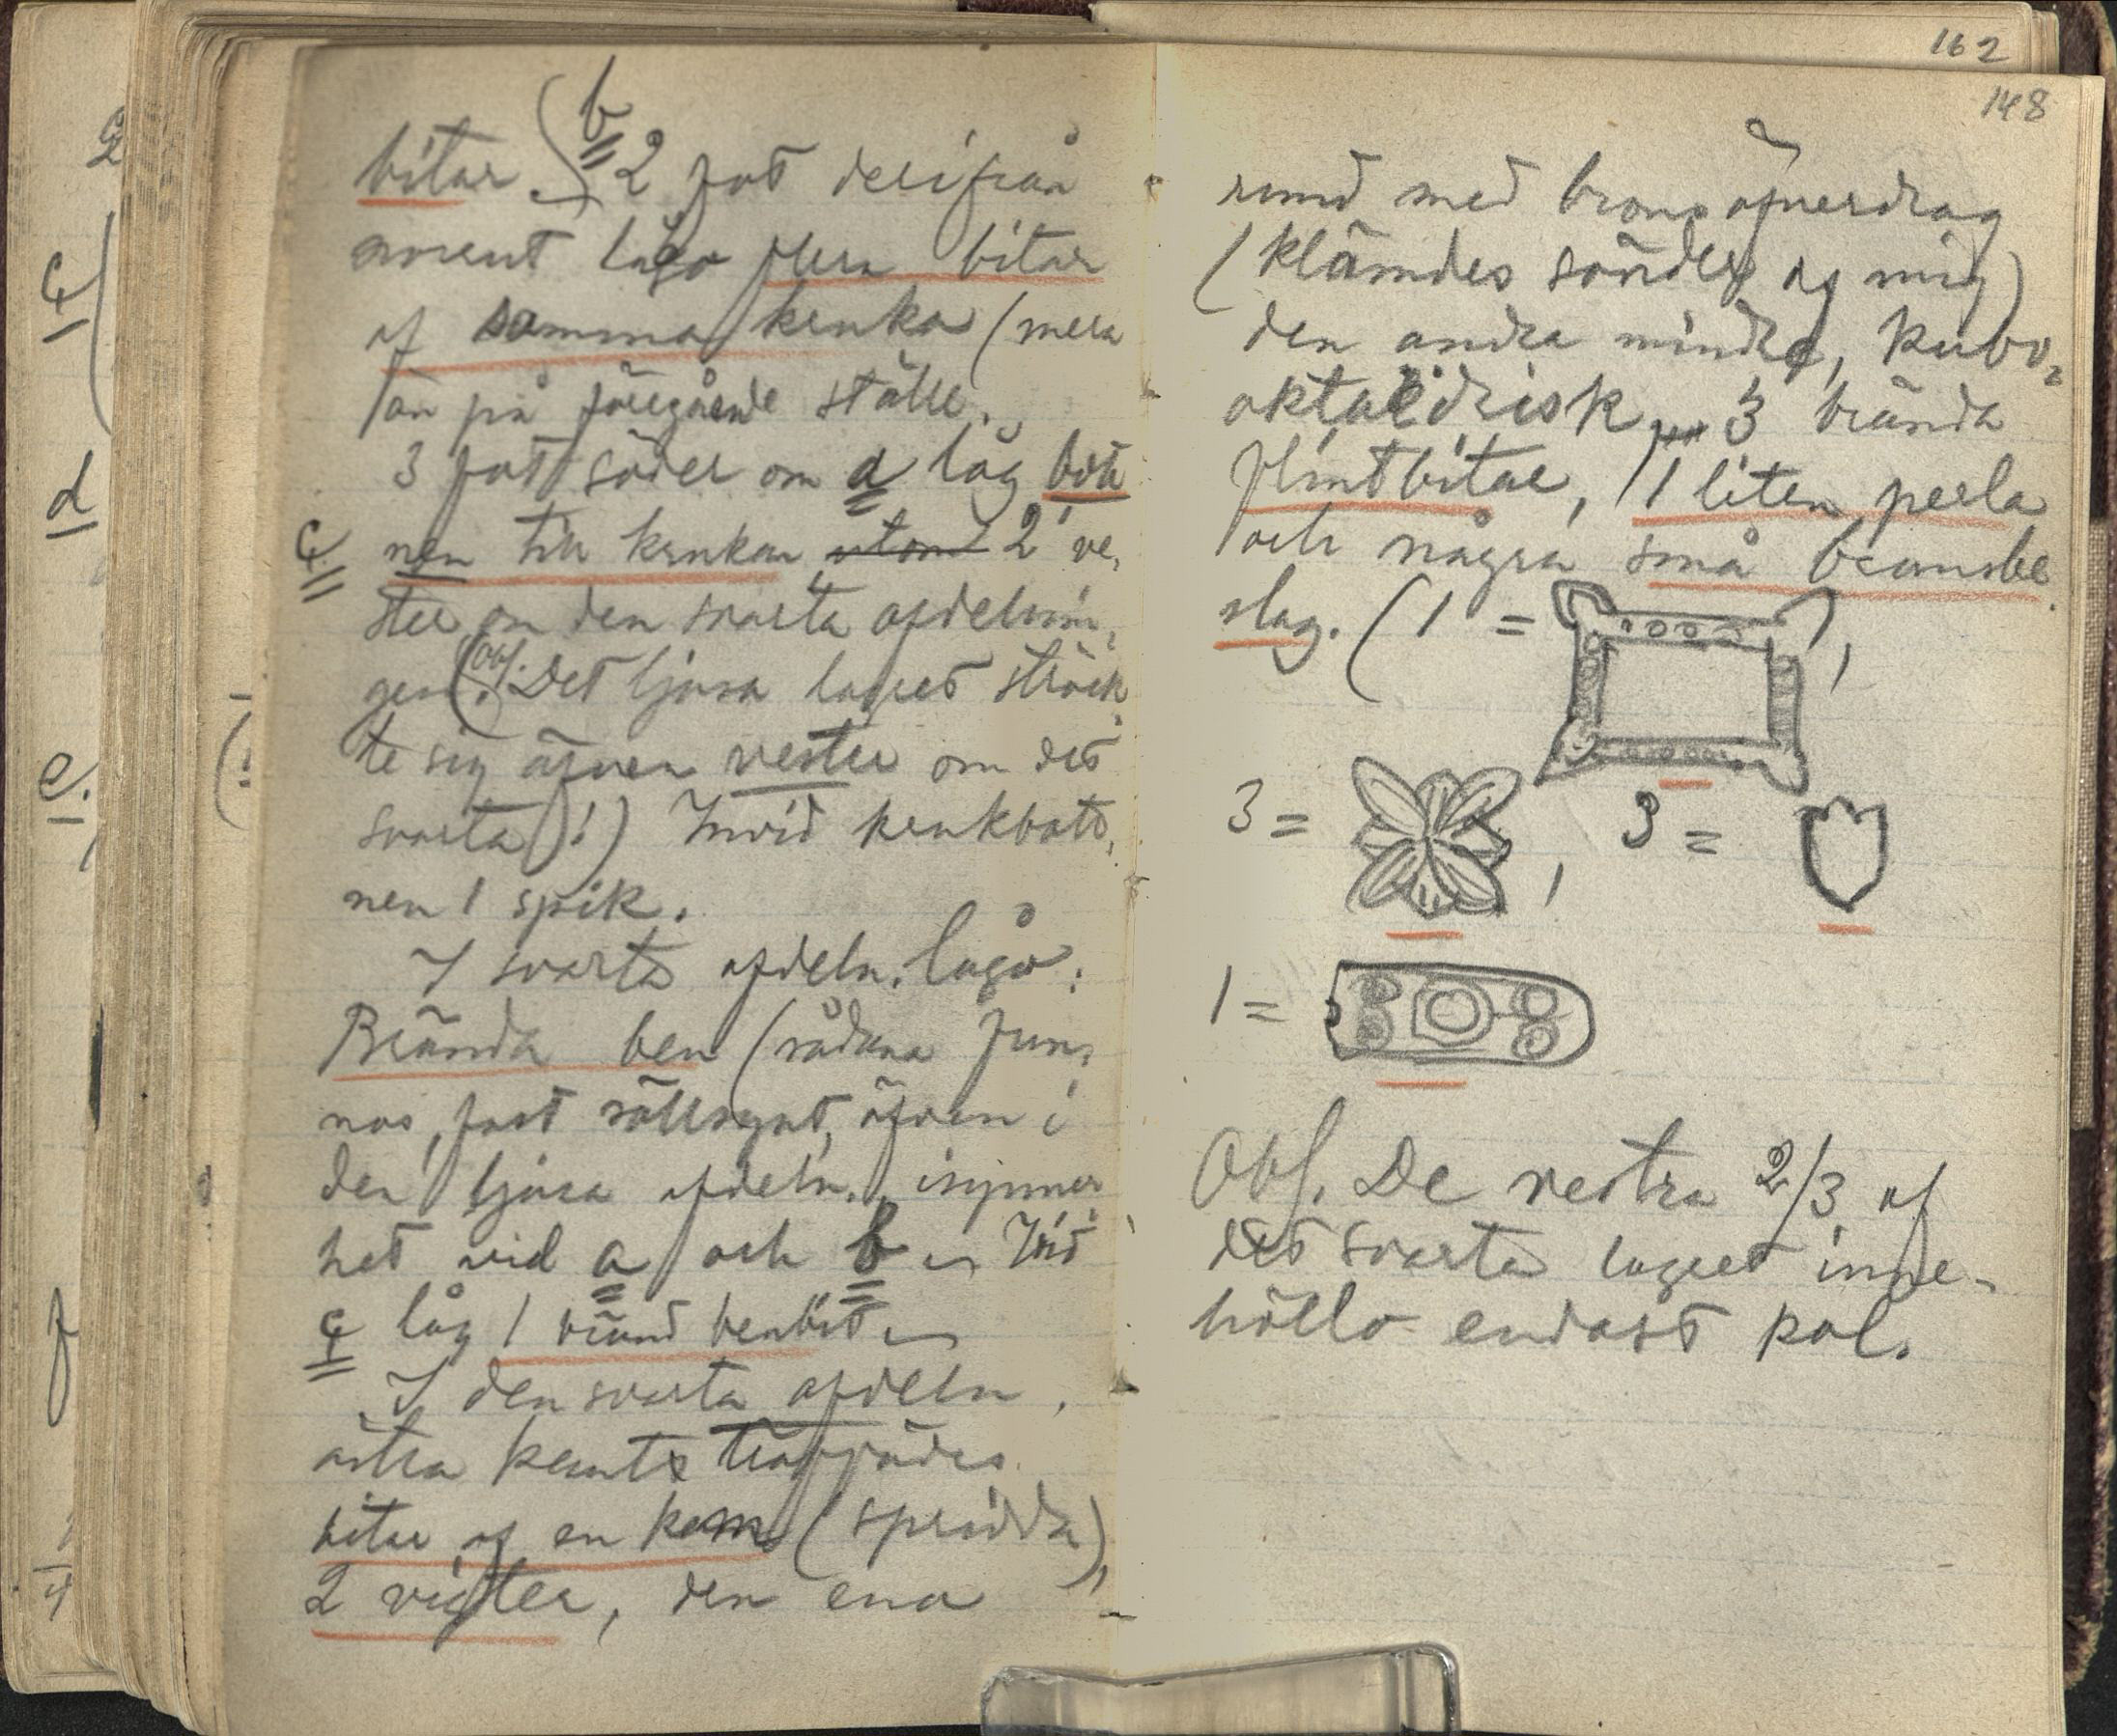 bitar. b 2 fot derifrån
norrut lågo flera bitar
af samma kruka (mera
än på föregående ställe.
3 fot söder om a låg bott
c nen till krukan utom 2' ve,
ster om den svarta afdelnin,
gen. (Obs. Det ljusa lagret sträck
te sig äfven vester om det
svarta!) Invid krukbott,
nen 1 spik.
I svarta afdeln. lågo:
Brända ben (sådana fun,
nos, fast sällsynt, äfven i
den ljusa afdeln., isynner,
het vid a och b. Vid
c låg 1 bränd benbit.
I den svarta afdeln.
östra kant träffades
bitar af en kam (spridda),
2 vigter, den ena
162
148
rund med bronsöfverdrag
(klämdes sönder af mig)
den andra mindre, kubo,
oktaëdrisk, 3 brända
flintbitar, 1 liten perla
och några små bronsbe
slag. (1 = ,
3 = , 3 =
1 =
Obs. De vestra 2/3 af
det svarta lagret inne-
höllo endast kol.
c
d
e.
f